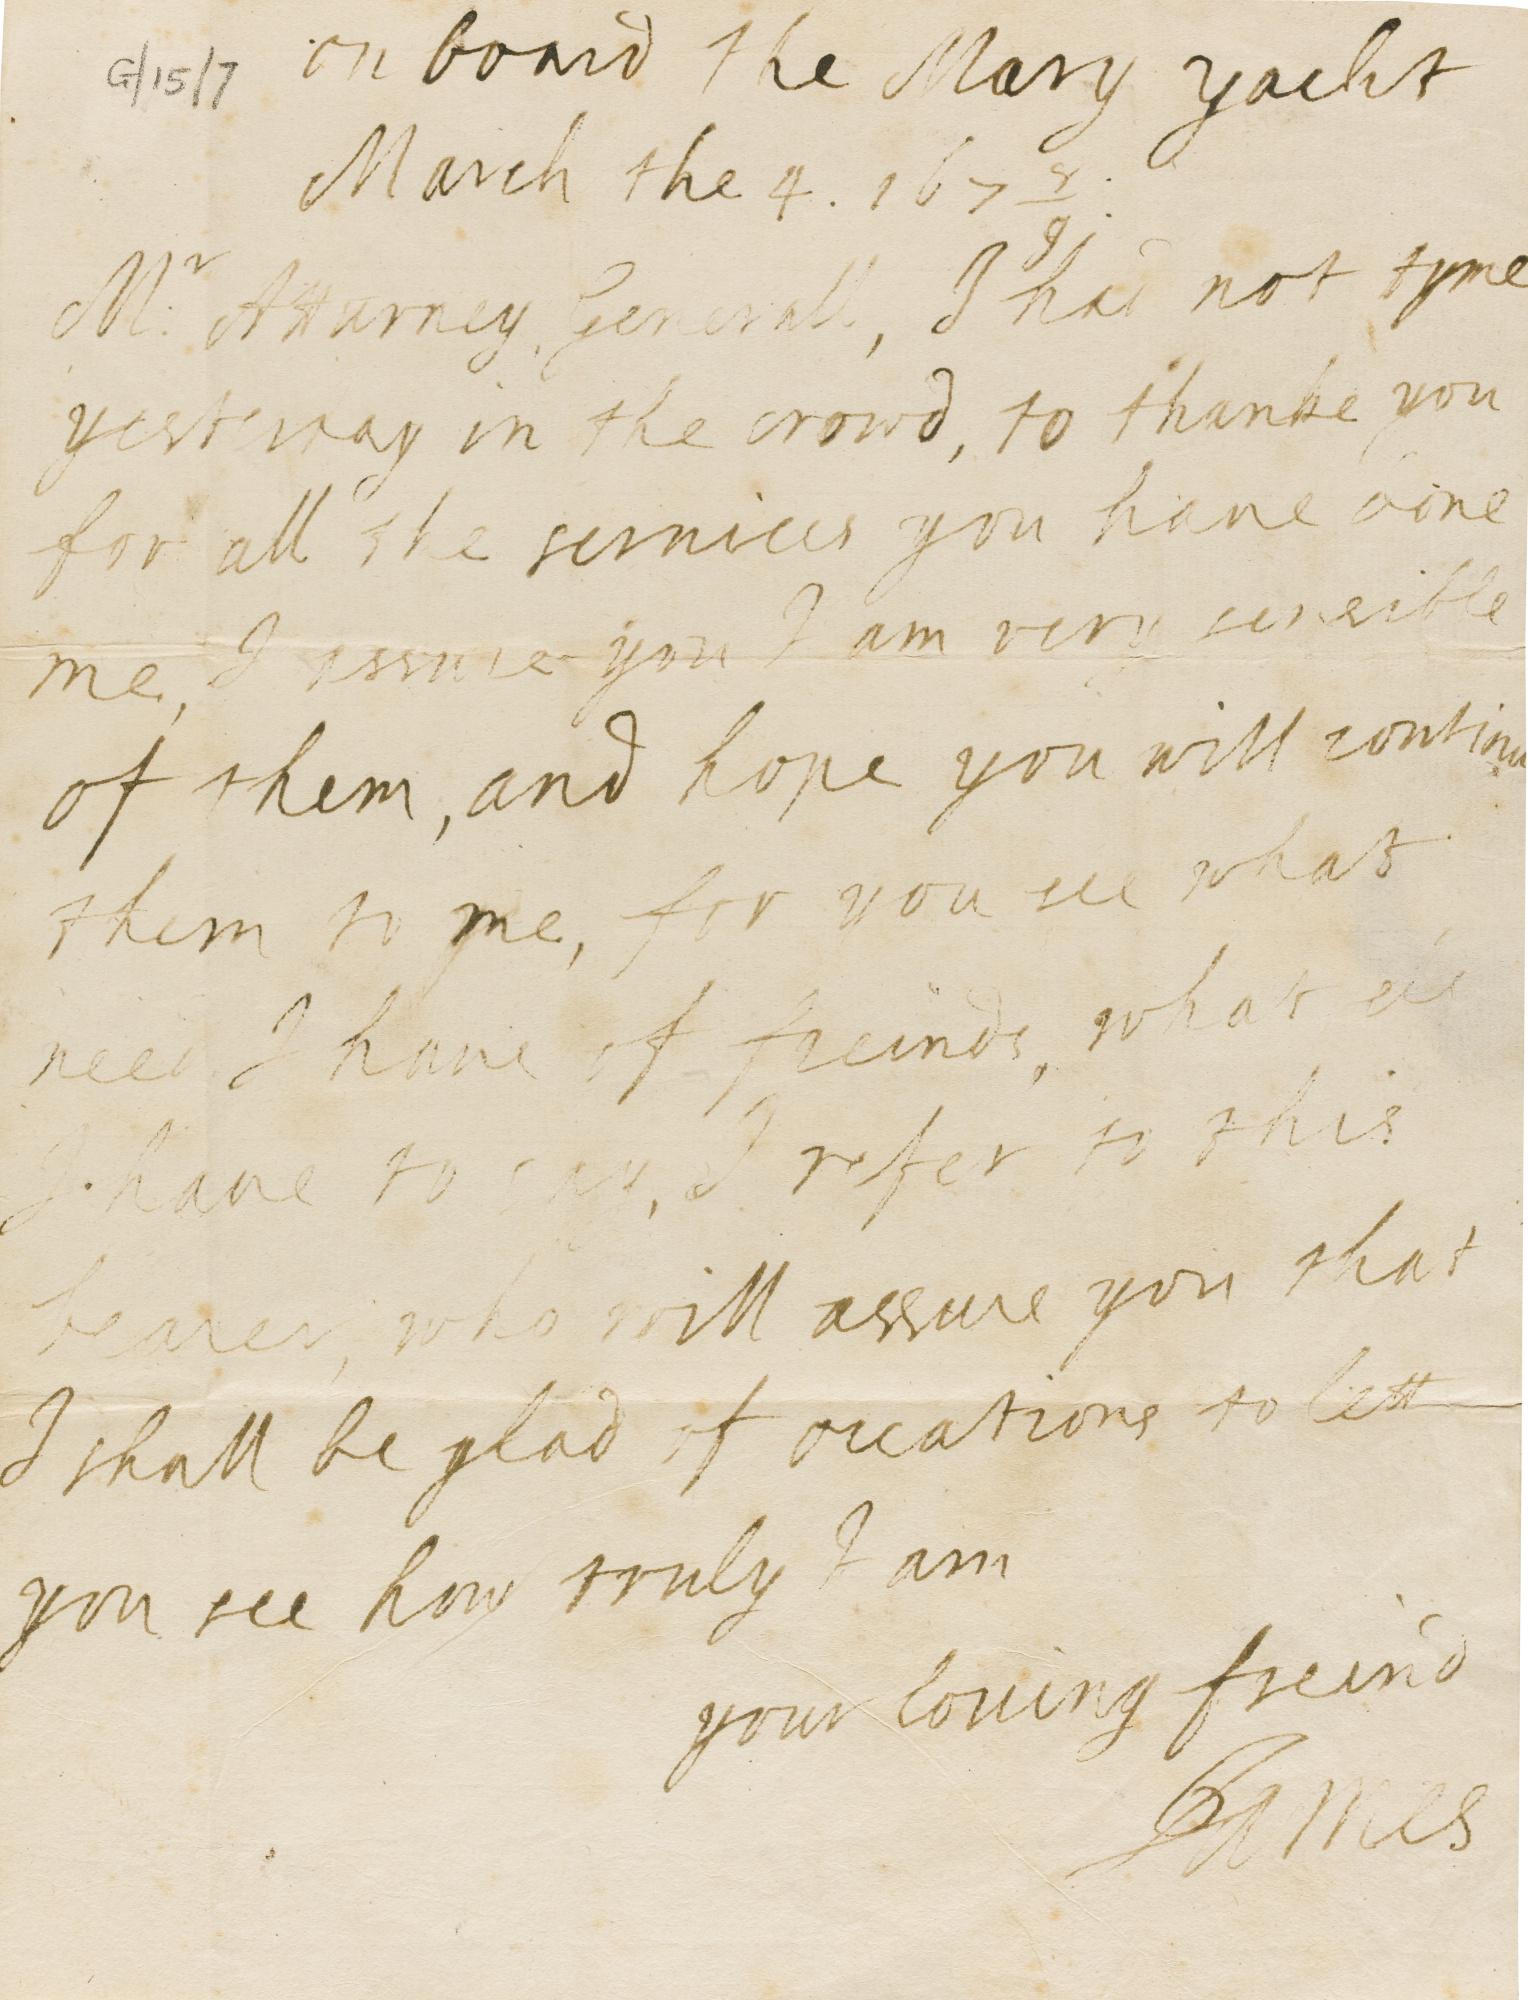 G/15/7
on board the Mary yacht
March the 4. 167 8/9.
Mr. Atturney Generall, I had not tyme
yesterday in the crowd, to thanke you
for all the services you have done
me, I assure you I am very sensible
of them, and hope you will continu
them to me, for you see what
need I have of freinds, what els
I have to say, I refer to this
bearer, who will assure you that
I shall be glad of occations to lett
you see how truly I am
your loving freind
James